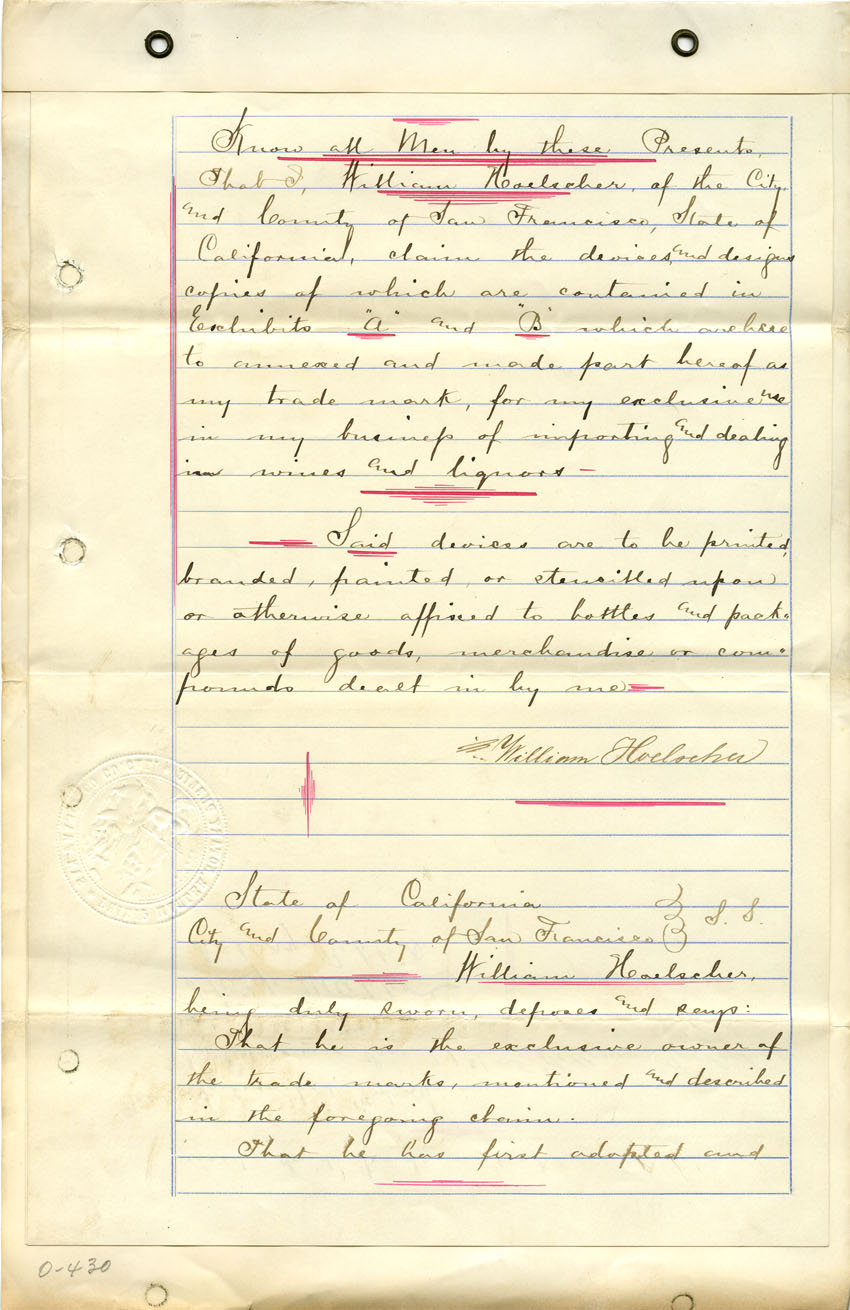 Know all Men by these Presents,
That I, William Hoelscher, of the City
and County of San Francisco, State of
California, claim the devices, and designs
copies of which are contained in
Exhibits "A" and "B" which are here
to annexed and made part hereof as
my trade mark, for my exclusive use
in my business of importing and dealing
in wines and liquors –
Said devices are to be printed,
branded, painted, or stencilled upon
or otherwise affixed to bottles and pack=
ages of goods, merchandise or com=
pounds dealt in by me
William Hoelscher
State of California
City and County of San Francisco } S. S.
William Hoelscher,
being duly sworn, deposes and says:
That he is the exclusive owner of
the trade marks, mentioned and described
in the foregoing claim.
That he has first adopted and
0-430